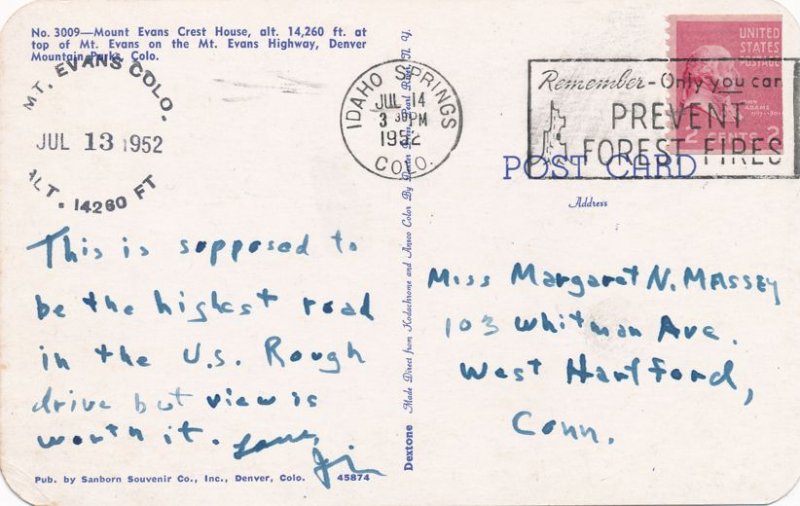 No. 3009—Mount Evans Crest House, alt. 14,260 ft. at
top of Mt. Evans on the Mt. Evans Highway, Denver
Mountain Parks, Colo.
MT. EVANS COLO.
JUL 13 1952
ALT. 14260 FT
This is supposed to
be the highest road
in the U.S. Rough
drive but view is
worth it. Love,
Jim
Pub. by Sanborn Souvenir Co., Inc., Denver, Colo. 45874
Dextone Made Direct from Kodachrome and Ansco Color By Dexter Press, Pearl River, N. Y.
IDAHO SPRINGS
JUL 14
3 30 PM
1952
COLO.
Remember - Only you can
PREVENT
FOREST FIRES
UNITED
STATES
POSTAGE
JOHN
ADAMS
2 CENTS 2
POST CARD
Address
Miss Margaret N. MASSEY
103 Whitman Ave.
West Hartford,
Conn.